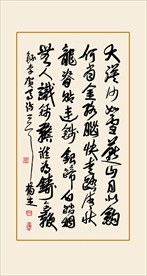 大漠沙如雪燕山月似鈎
何當金絡腦快走踏清秋
龍脊貼連錢銀蹄白踏烟
無人織錦韂誰為鑄金鞭
李賀馬詩